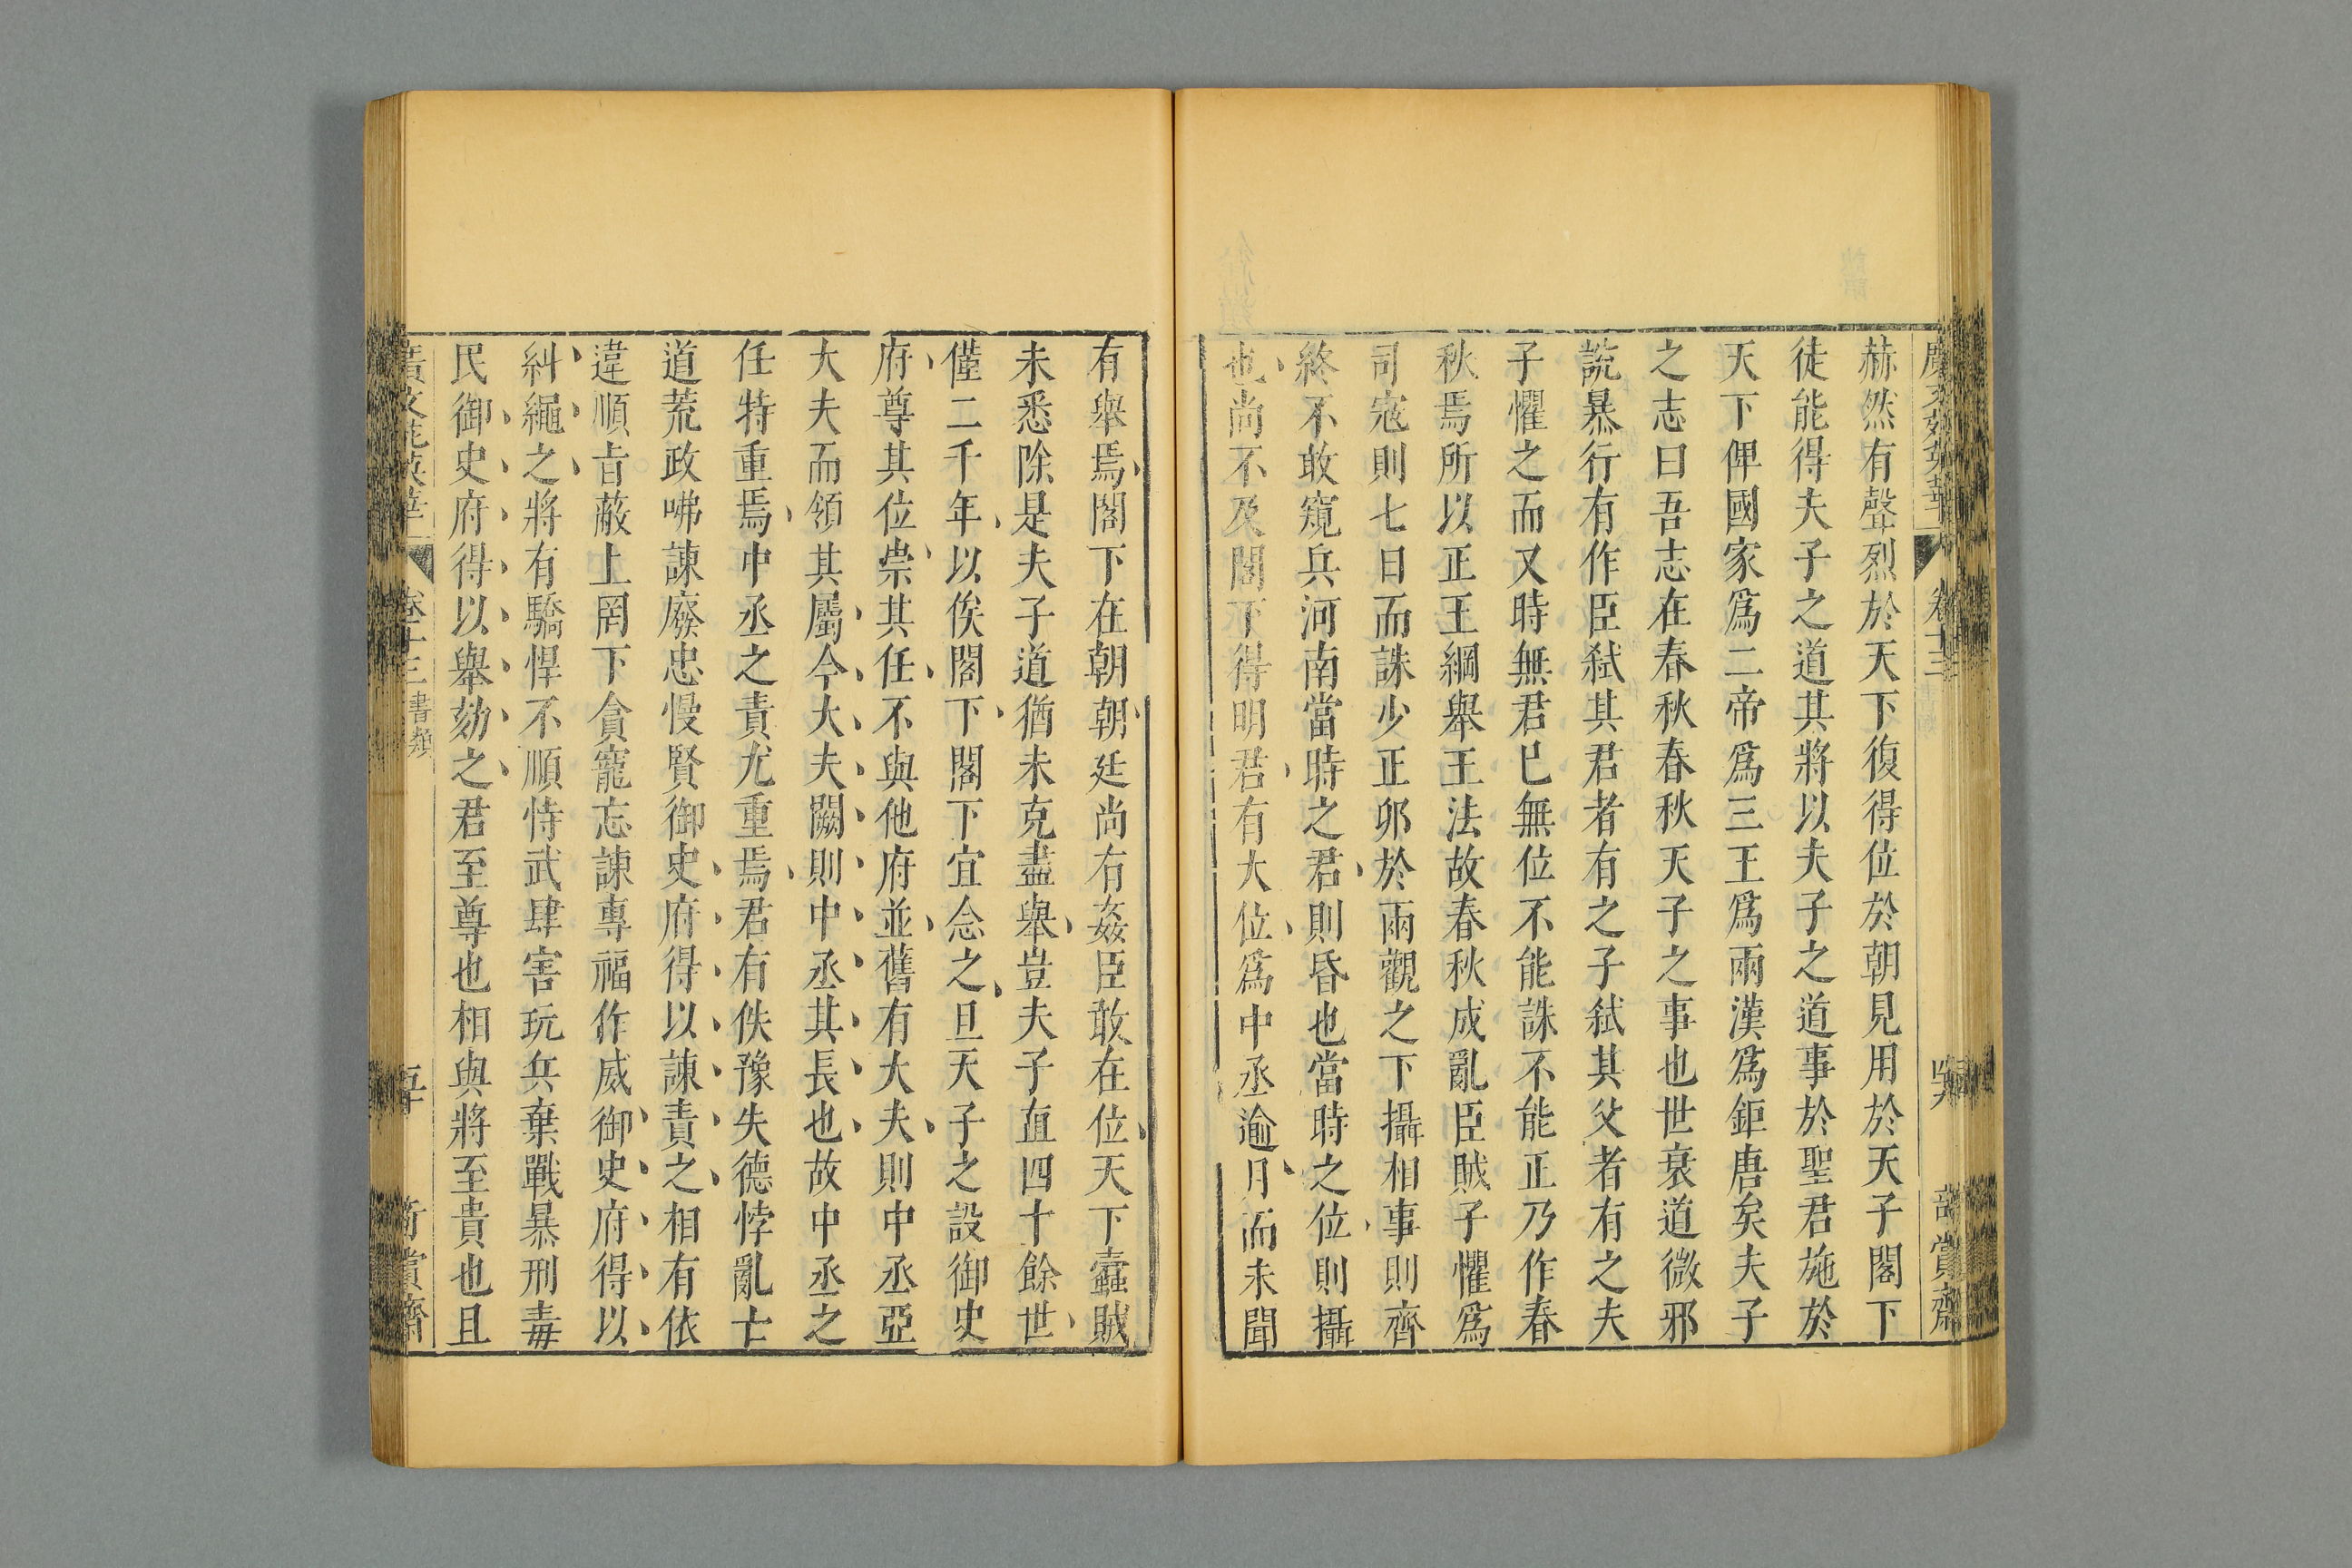 赫然有聲烈於天下復得位於朝見用於天子閣下
徒能得夫子之道其將以夫子之道事於聖君施於
天下俾國家爲二帝爲三王爲兩漢爲鉅唐矣夫子
之志曰吾志在春秋春秋天子之事也世衰道微邪
說暴行有作臣弒其君者有之子弒其父者有之夫
子懼之而又時無君已無位不能誅不能正乃作春
秋焉所以正王綱舉王法故春秋成亂臣賊子懼爲
司寇則七日而誅少正卯於兩觀之下攝相事則齊
終不敢窺兵河南當時之君則昏也當時之位則攝
也尚不及閣下得明君有大位爲中丞逾月而未聞
有舉焉閣下在朝朝廷尚有姦臣敢在位天下蠹賊
未悉除是夫子道猶未克盡舉豈夫子直四十餘世
僅二千年以俟閣下閣下宜念之且天子之設御史
府尊其位崇其任不與他府並舊有大夫則中丞亞
大夫而領其屬今大夫闕則中丞其長也故中丞之
任特重焉中丞之責尤重焉君有佚豫失德悖亂亡
道荒政咈諫廢忠慢賢御史府得以諫責之相有依
違順旨蔽上罔下貪寵忘諫專福作威御史府得以
糾繩之將有驕悍不順恃武肆害玩兵棄戰暴刑毒
民御史府得以舉劾之君至尊也相與將至貴也且
卷十三 書類